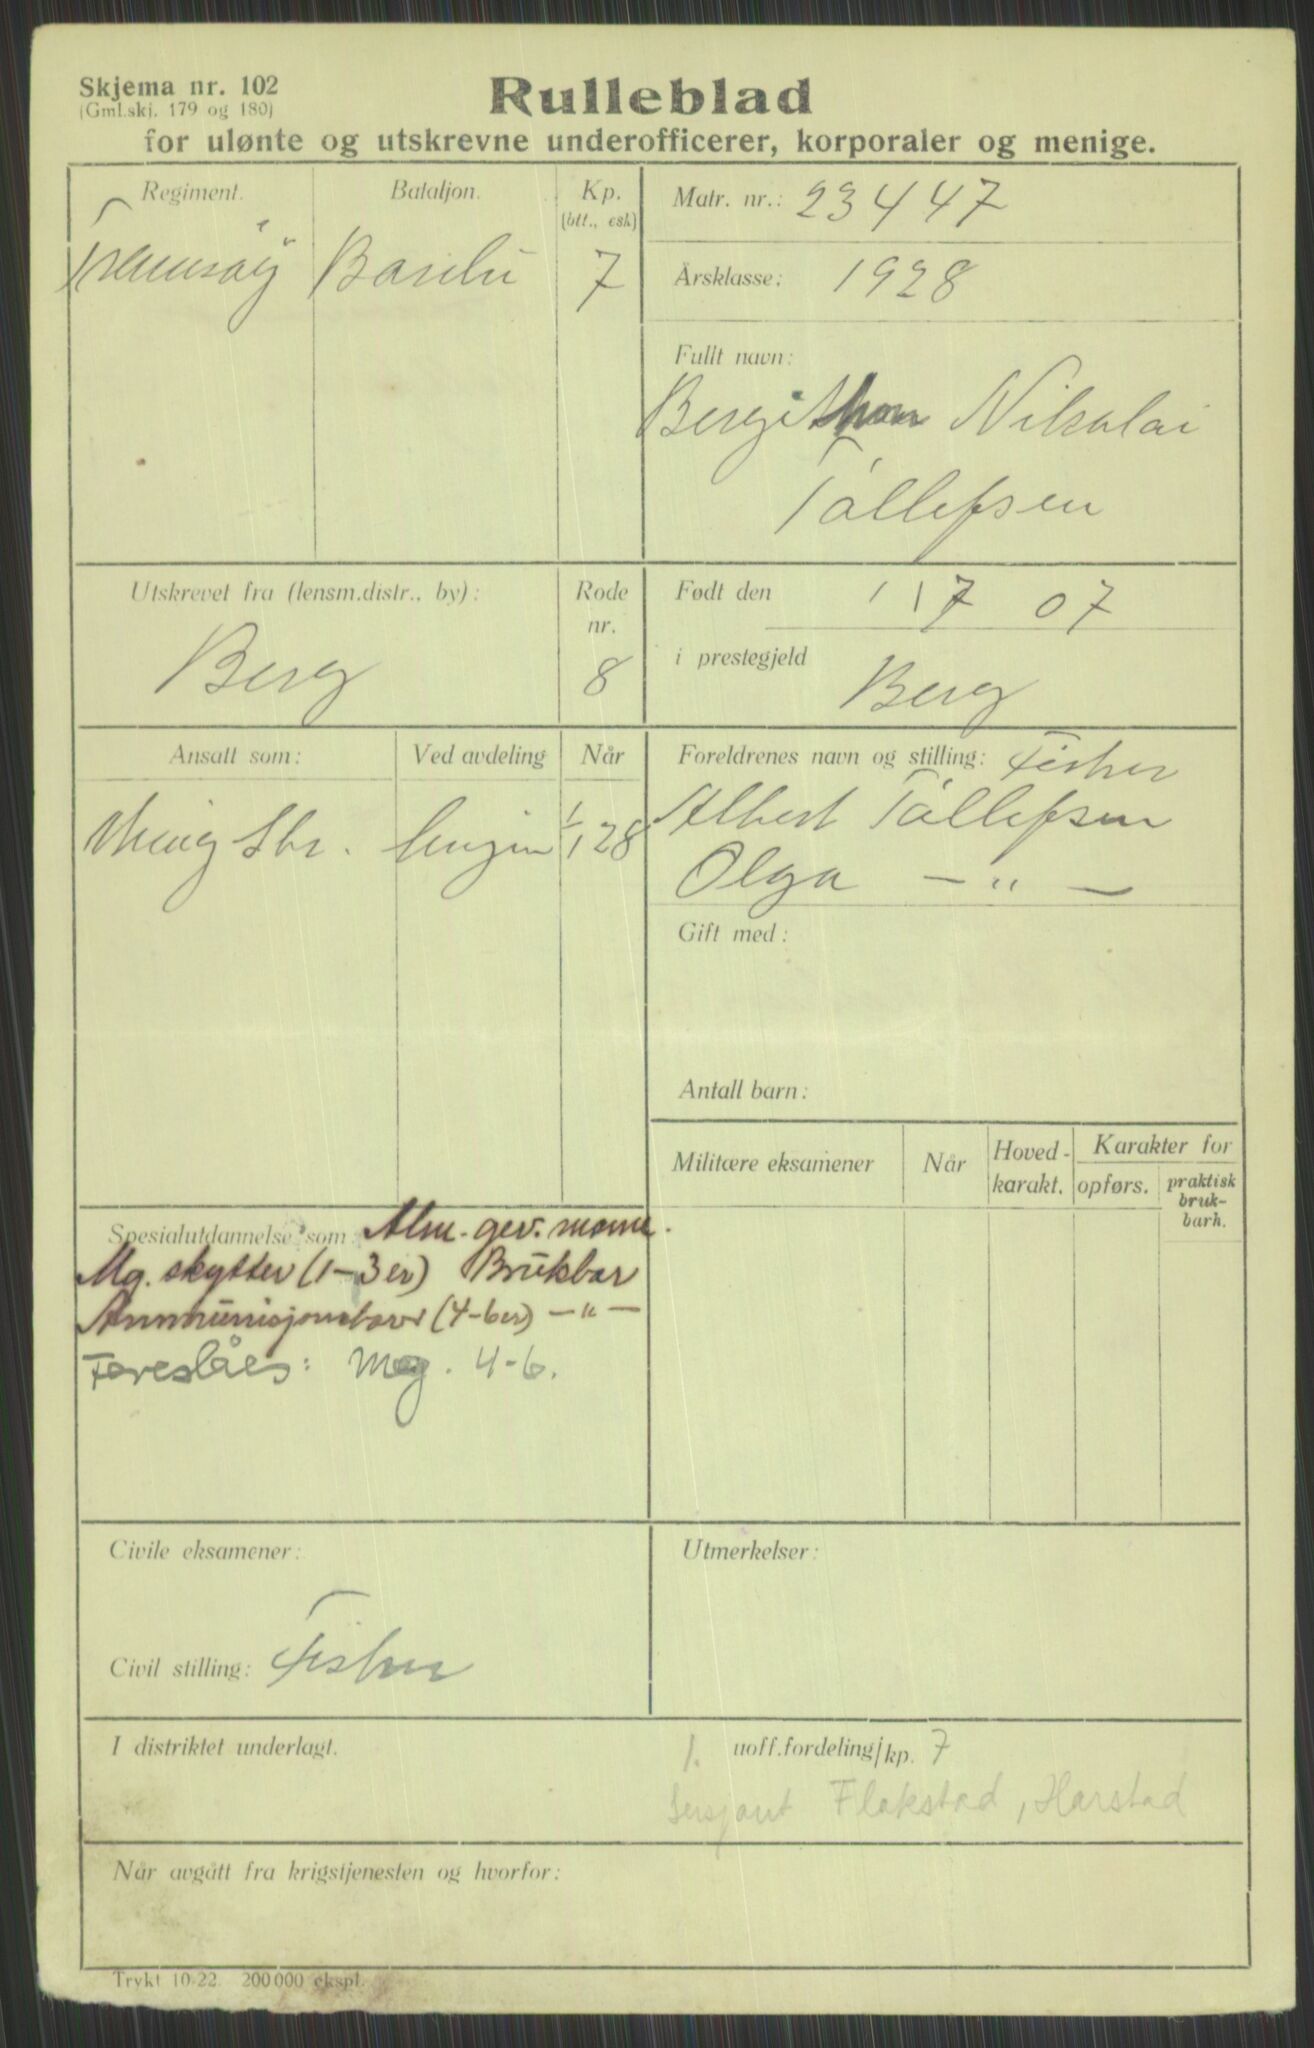 Skjema nr. 102
(Gml.skj. 179 og 180)
Rulleblad
for ulønte og utskrevne underofficerer, korporaler og menige.
Regiment.
Bataljon.
Kp.
(btt., esk)
7
Matr. nr.: 23447
Årsklasse: 1928
Fullt navn:
Nikolai
Tollefsen
Utskrevet fra (lensm.distr., by):
Berg
Rode
nr.
8
Født den 07
i prestegjeld
Berg
Ansatt som:
Ved avdeling
Når
1/1 28
Foreldrenes navn og stilling: Fisker
Albert Tollefsen
Olga — " —
Gift med:
Antall barn:
Militære eksamener
Når
Hoved-
karakt.
Karakter for
opførs.
praktisk
bruk-
barh.
Spesialutdannelse som: Alm. gev. mann.
Mg. skytter (1-3er) Brukbar
Ammunisjonsbærer (4-6er) — " —
Foreslåes: Meg. 4-6.
Civile eksamener:
Civil stilling: Fisker
Utmerkelser:
I distriktet underlagt.
1. uoff.fordeling/kp. 7
Sersjant Flakstad, Harstad
Når avgått fra krigstjenesten og hvorfor:
Trykt 10-22. 200 000 ekspl.